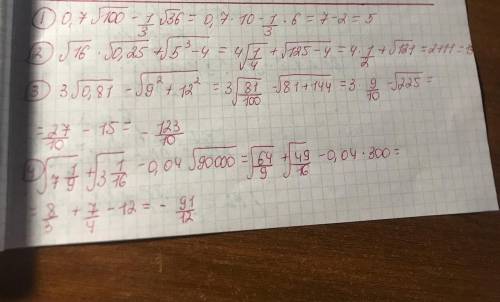 ① 0,7√100 - 1/3 √36 = 0,7 · 10 - 1/3 · 6 = 7 - 2 = 5
② √16 · √0,25 + √(5³-4) = 4√(1/4) + √(125-4) = 4 · 1/2 + √121 = 2+11 =
③ 3√0,81 - √(9²+12²) = 3√(81/100) - √(81+144) = 3 · 9/10 - √225 =
= 27/10 - 15 = - 123/10
④ √(7 1/9) + √(3 1/16) - 0,04√90000 = √(64/9) + √(49/16) - 0,04 · 300 =
= 8/3 + 7/4 - 12 = - 91/12